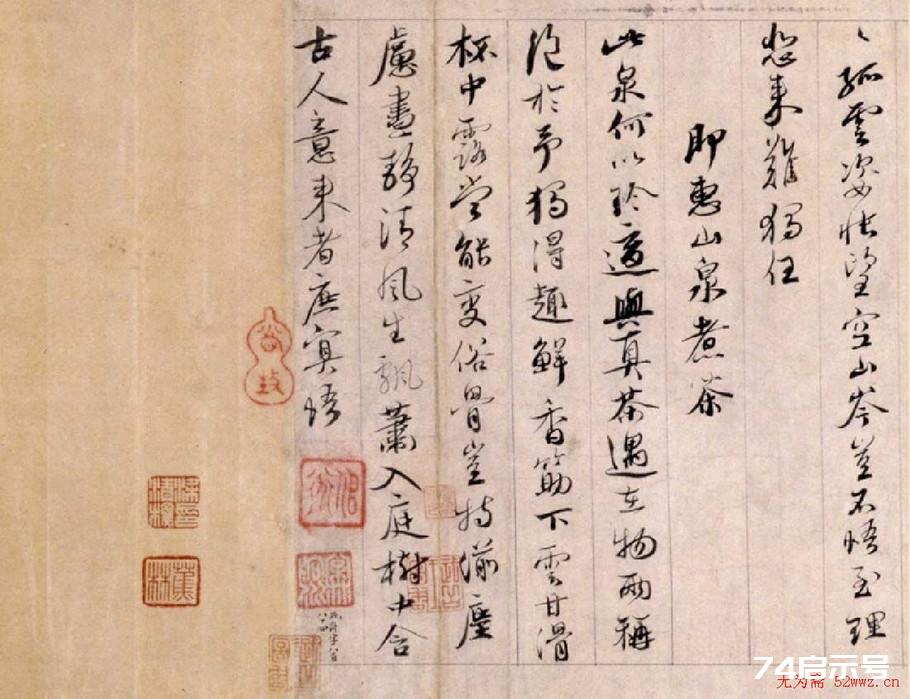 〻孤雲姿悵望空山岑豈不悟至理
悲來難獨任
即惠山泉煮茶
此泉何以珍適與真茶遇在物兩稱
絕於予獨得趣鮮香筯下雲甘滑
杯中露當能變俗骨豈特湔塵
慮晝靜清風生飄蕭入庭樹中含
古人意來者庶冥悟
蕉林
74启示号
无为斋 52wwz.cn